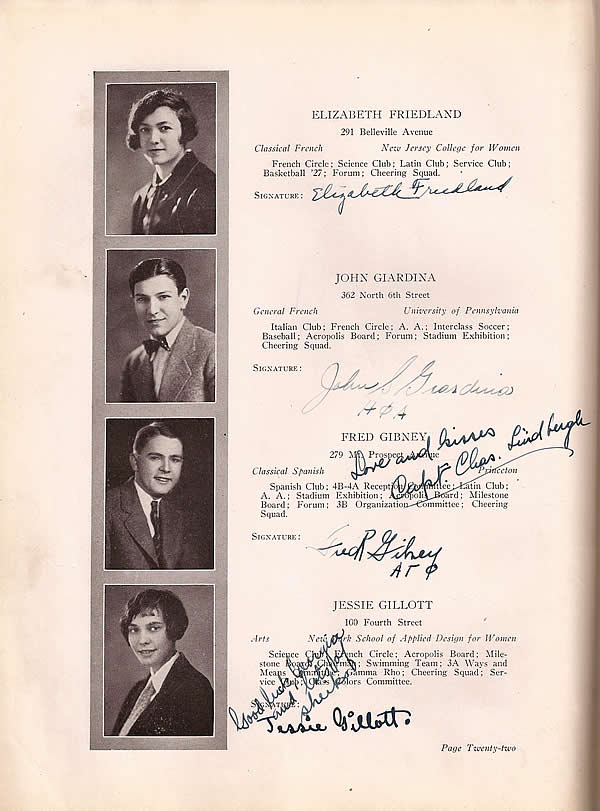 ELIZABETH FRIEDLAND
291 Belleville Avenue
Classical French New Jersey College for Women
French Circle; Science Club; Latin Club; Service Club;
Basketball '27; Forum; Cheering Squad.
SIGNATURE: Elizabeth Friedland
JOHN GIARDINA
362 North 6th Street
General French University of Pennsylvania
Italian Club; French Circle; A. A.; Interclass Soccer;
Baseball; Acropolis Board; Forum; Stadium Exhibition;
Cheering Squad.
SIGNATURE:
John S Giardina
FRED GIBNEY
279 Mt. Prospect Avenue
Love and kisses
Capt. Chas. Lindbergh
Classical Spanish Princeton
Spanish Club; 4B-4A Reception Committee; Latin Club;
A. A.; Stadium Exhibition; Acropolis Board; Milestone
Board; Forum; 3B Organization Committee; Cheering
Squad.
SIGNATURE:
Fred Gibney
ΑΓΦ
JESSIE GILLOTT
160 Fourth Street
Arts New York School of Applied Design for Women
Science Club; French Circle; Acropolis Board; Mile-
stone Board Chairman; Swimming Team; 3A Ways and
Means Committee; Gamma Rho; Cheering Squad; Ser-
vice Club; Class Colors Committee.
SIGNATURE:
Good luck Georgia
and
Jessie Gillott
Page Twenty-two